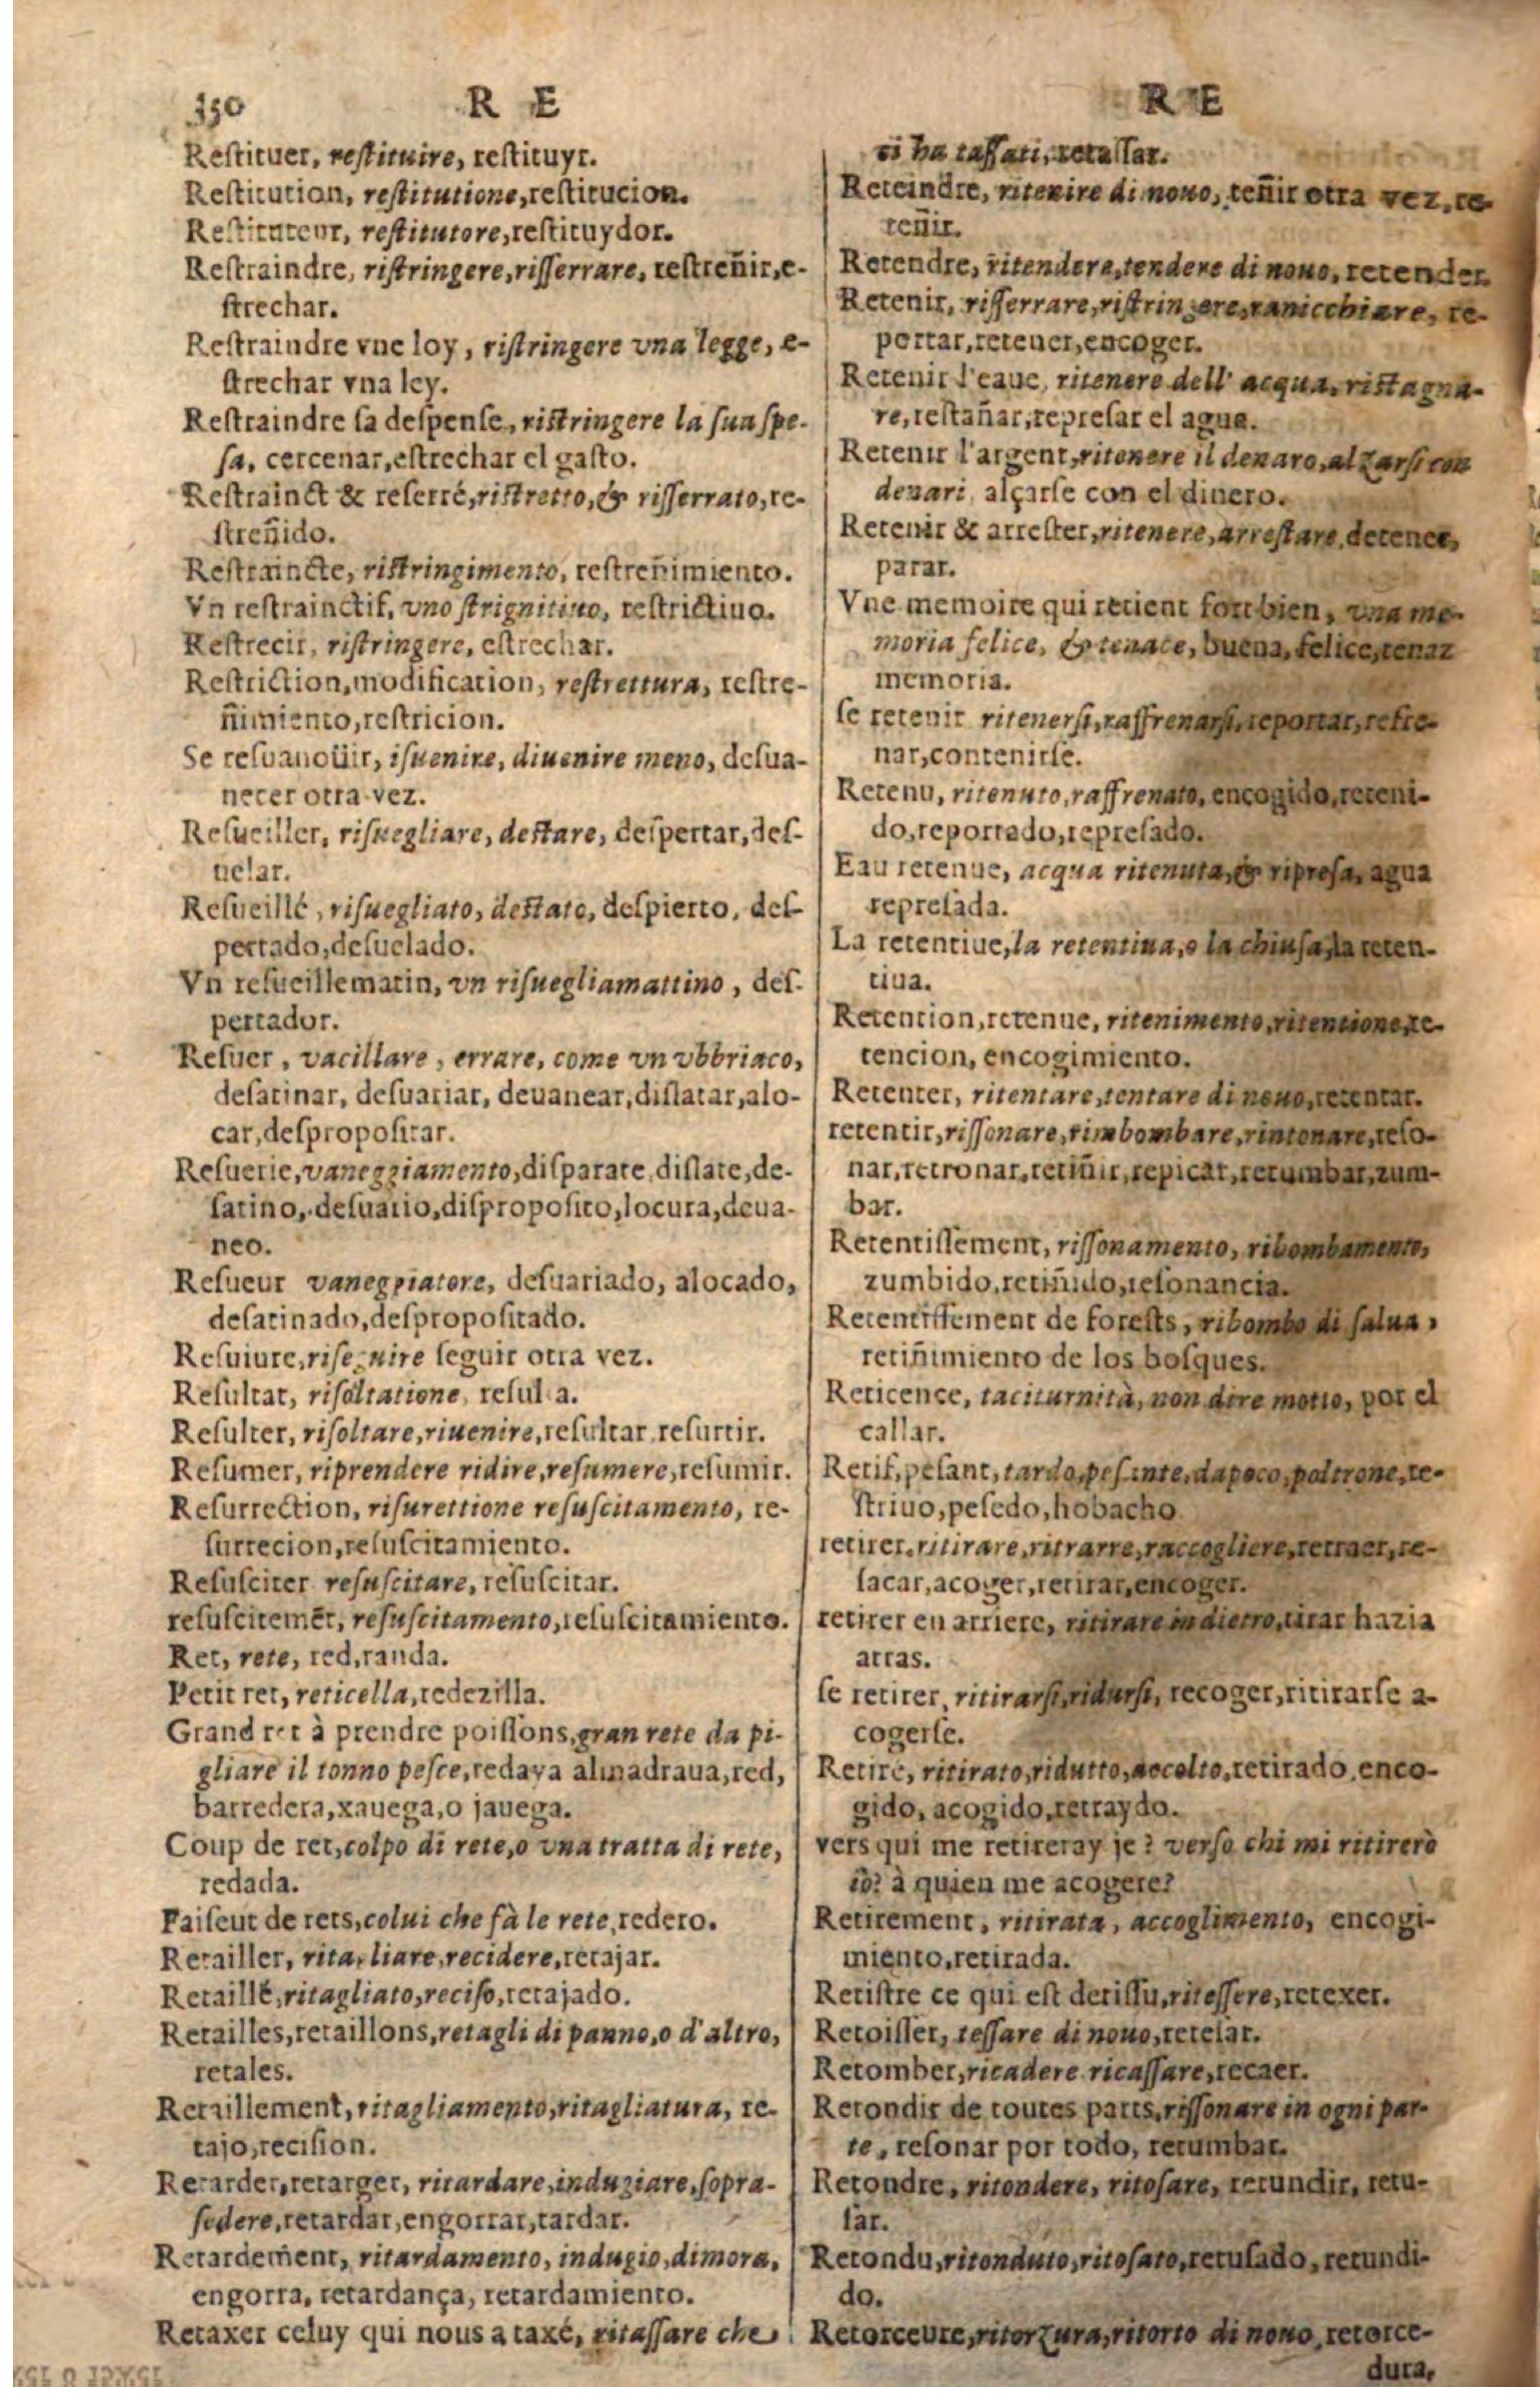 350
R E
Reſtituer, reſtituire, reſtituyr.
Reſtitution, reſtitutione, reſtitucion.
Reſtituteur, reſtitutore, reſtituydor.
Reſtraindre, riſtringere, riſſerrare, reſtreñir, e-
ſtrechar.
Reſtraindre vne loy, riſtringere vna legge, e-
ſtrechar vna ley.
Reſtraindre ſa deſpenſe, riſtringere la ſua ſpe-
ſa, cercenar, eſtrechar el gaſto.
Reſtrainct & reſerré, riſtretto, & riſſerrato, re-
ſtreñido.
Reſtraincte, riſtringimento, reſtreñimiento.
Vn reſtrainctif, vno ſtrignitiuo, reſtrictiuo.
Reſtrecir, riſtringere, eſtrechar.
Reſtriction, modification, reſtrettura, reſtre-
ñimiento, reſtricion.
Se reſuanoüir, iſuenire, diuenire meno, deſua-
necer otra vez.
Reſueiller, riſuegliare, deſtare, deſpertar, deſ-
uelar.
Reſueillé, riſuegliato, deſtato, deſpierto, deſ-
pertado, deſuelado.
Vn reſueillematin, vn riſuegliamattino, deſ-
pertador.
Reſuer, vacillare, errare, come vn vbbriaco,
deſatinar, deſuariar, deuanear, diſlatar, alo-
car, deſpropoſitar.
Reſuerie, vaneggiamento, diſparate, diſlate, de-
ſatino, deſuario, diſpropoſito, locura, deua-
neo.
Reſueur vaneggiatore, deſuariado, alocado,
deſatinado, deſpropoſitado.
Reſuiure, riſeguire ſeguir otra vez.
Reſultat, riſoltatione, reſulta.
Reſulter, riſoltare, riuenire, reſultar, reſurtir.
Reſumer, riprendere ridire, reſumere, reſumir.
Reſurrection, riſurettione reſuſcitamento, re-
ſurrecion, reſuſcitamiento.
Reſuſciter reſuſcitare, reſuſcitar.
reſuſcitemẽt, reſuſcitamento, reſuſcitamiento.
Ret, rete, red, randa.
Petit ret, reticella, redezilla.
Grand ret à prendre poiſſons, gran rete da pi-
gliare il tonno peſce, redaya almadraua, red,
barredera, xauega, o jauega.
Coup de ret, colpo di rete, o vna tratta di rete,
redada.
Faiſeur de rets, colui che fà le rete, redero.
Retailler, ritagliare, recidere, retajar.
Retaillé, ritagliato, reciſo, retajado.
Retailles, retaillons, retagli di panno, o d'altro,
retales.
Retaillement, ritagliamento, ritagliatura, re-
tajo, reciſion.
Retarder, retarger, ritardare, induziare, ſopra-
ſedere, retardar, engorrar, tardar.
Retardement, ritardamento, indugio, dimora,
engorra, retardança, retardamiento.
Retaxer celuy qui nous a taxé, ritaſſare che
R E
ci ha taſſati, retaſſar.
Reteindre, ritenire di nouo, teñir otra vez, re-
teñir.
Retendre, ritendere, tendere di nouo, retender.
Retenir, riſſerrare, riſtringere, ranicchiare, re-
portar, retener, encoger.
Retenir l'eaue, ritenere dell' acqua, riſtagna-
re, reſtañar, repreſar el agua.
Retenir l'argent, ritenere il denaro, alzarſi con
denari, alçarſe con el dinero.
Retenir & arreſter, ritenere, arreſtare, detener,
parar.
Vne memoire qui retient fort bien, vna me-
moria felice, & tenace, buena, felice, tenaz
memoria.
ſe retenir ritenerſi, raffrenarſi, reportar, refre-
nar, contenirſe.
Retenu, ritenuto, raffrenato, encogido, reteni-
do, reportado, repreſado.
Eau retenue, acqua ritenuta, & ripreſa, agua
repreſada.
La retentiue, la retentiua, o la chiuſa, la reten-
tiua.
Retention, retenue, ritenimento, ritentione, re-
tencion, encogimiento.
Retenter, ritentare, tentare di nouo, retentar.
retentir, riſſonare, rimbombare, rintonare, reſo-
nar, retronar, retiñir, repicar, retumbar, zum-
bar.
Retentiſſement, riſſonamento, ribombamento,
zumbido, retiñido, reſonancia.
Retentiſſement de foreſts, ribombo di ſalua,
retiñimiento de los boſques.
Reticence, taciturnità, non dire motto, por el
callar.
Retif, peſant, tardo, peſante, dapoco, poltrone, re-
ſtriuo, peſedo, hobacho
retirer, ritirare, ritrarre, raccogliere, retraer, re-
ſacar, acoger, retirar, encoger.
retirer en arriere, ritirare in dietro, tirar hazia
atras.
ſe retirer, ritirarſi, ridurſi, recoger, ritirarſe a-
cogerſe.
Retiré, ritirato, ridutto, accolto, retirado, enco-
gido, acogido, retraydo.
vers qui me retireray je? verſo chi mi ritirerò
iò? à quien me acogere?
Retirement, ritirata, accoglimento, encogi-
miento, retirada.
Retiſtre ce qui eſt detiſſu, riteſſere, retexer.
Retoiſſer, teſſare di nouo, reteſar.
Retomber, ricadere ricaſſare, recaer.
Retondir de toutes parts, riſſonare in ogni par-
te, reſonar por todo, retumbar.
Retondre, ritondere, ritoſare, retundir, retu-
ſar.
Retondu, ritonduto, ritoſato, retuſado, retundi-
do.
Retorceure, ritorzura, ritorto di nouo, retorce-
dura,